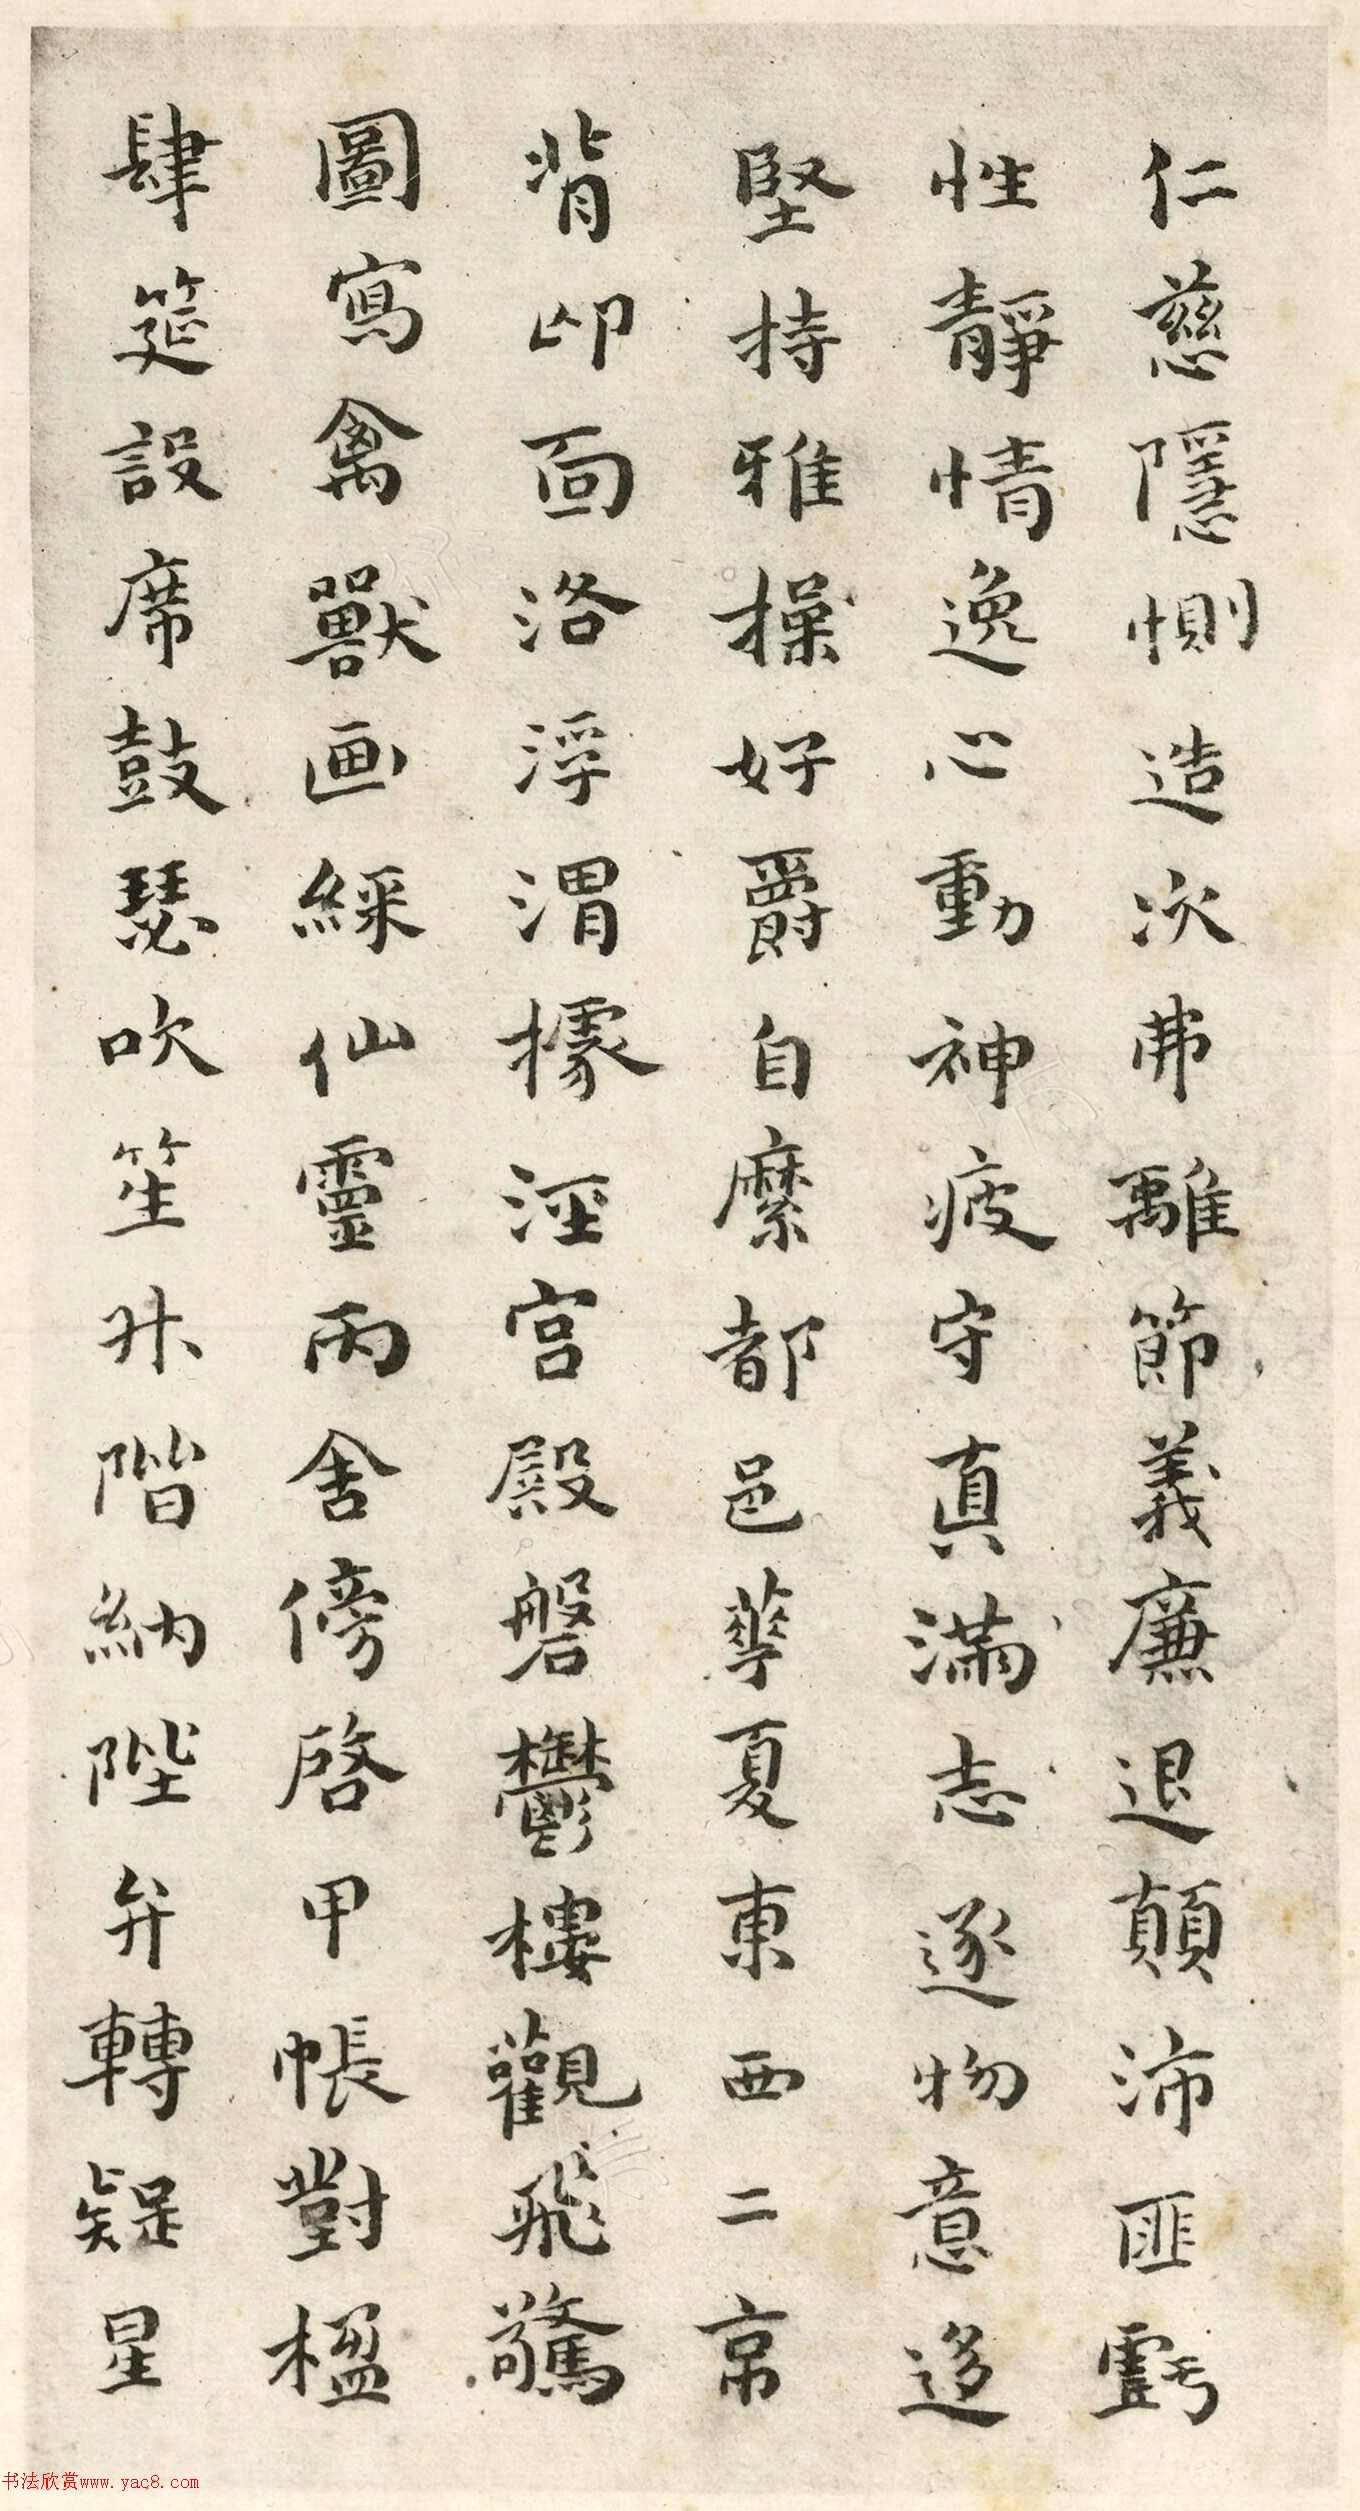 仁慈隱惻造次弗離節義廉退顛沛匪虧
性靜情逸心動神疲守真滿志逐物意移
堅持雅操好爵自縻都邑華夏東西二京
背邙面洛浮渭據涇宮殿磐鬱樓觀飛驚
圖寫禽獸画綵仙靈丙舍傍啓甲帳對楹
肆筵設席鼓瑟吹笙升階納陛弁轉疑星
书法欣赏www.yac8.com